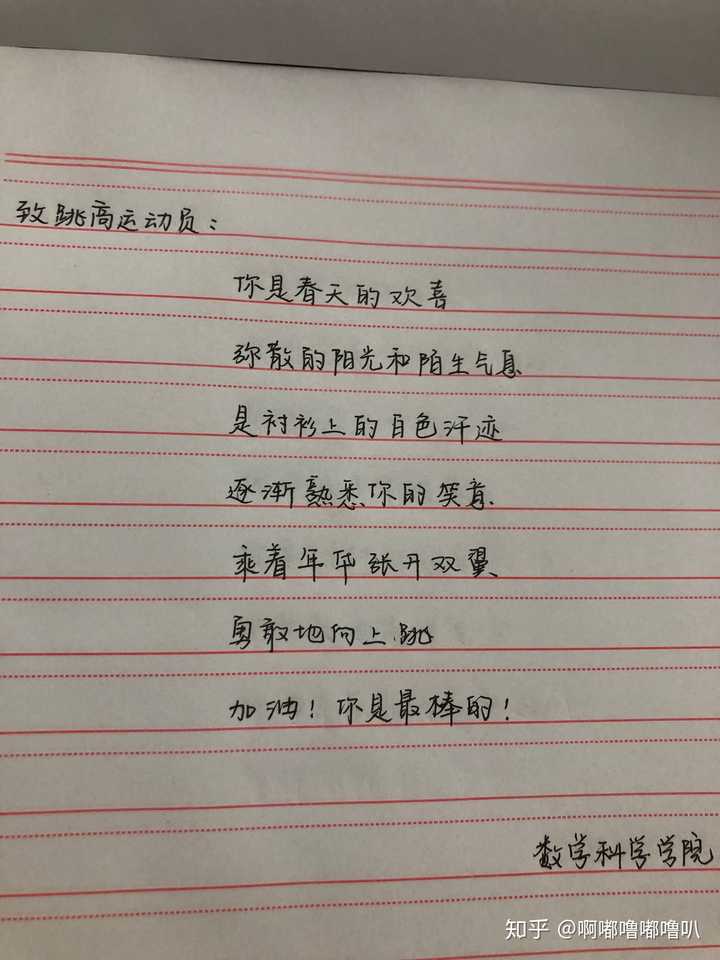 致跳高运动员：
你是春天的欢喜
弥散的阳光和陌生气息
是衬衫上的白色汗迹
逐渐熟悉你的笑意
乘着年华张开双翼
勇敢地向上跳
加油！你是最棒的！
数学科学学院
知乎 @啊嘟噜嘟噜叭